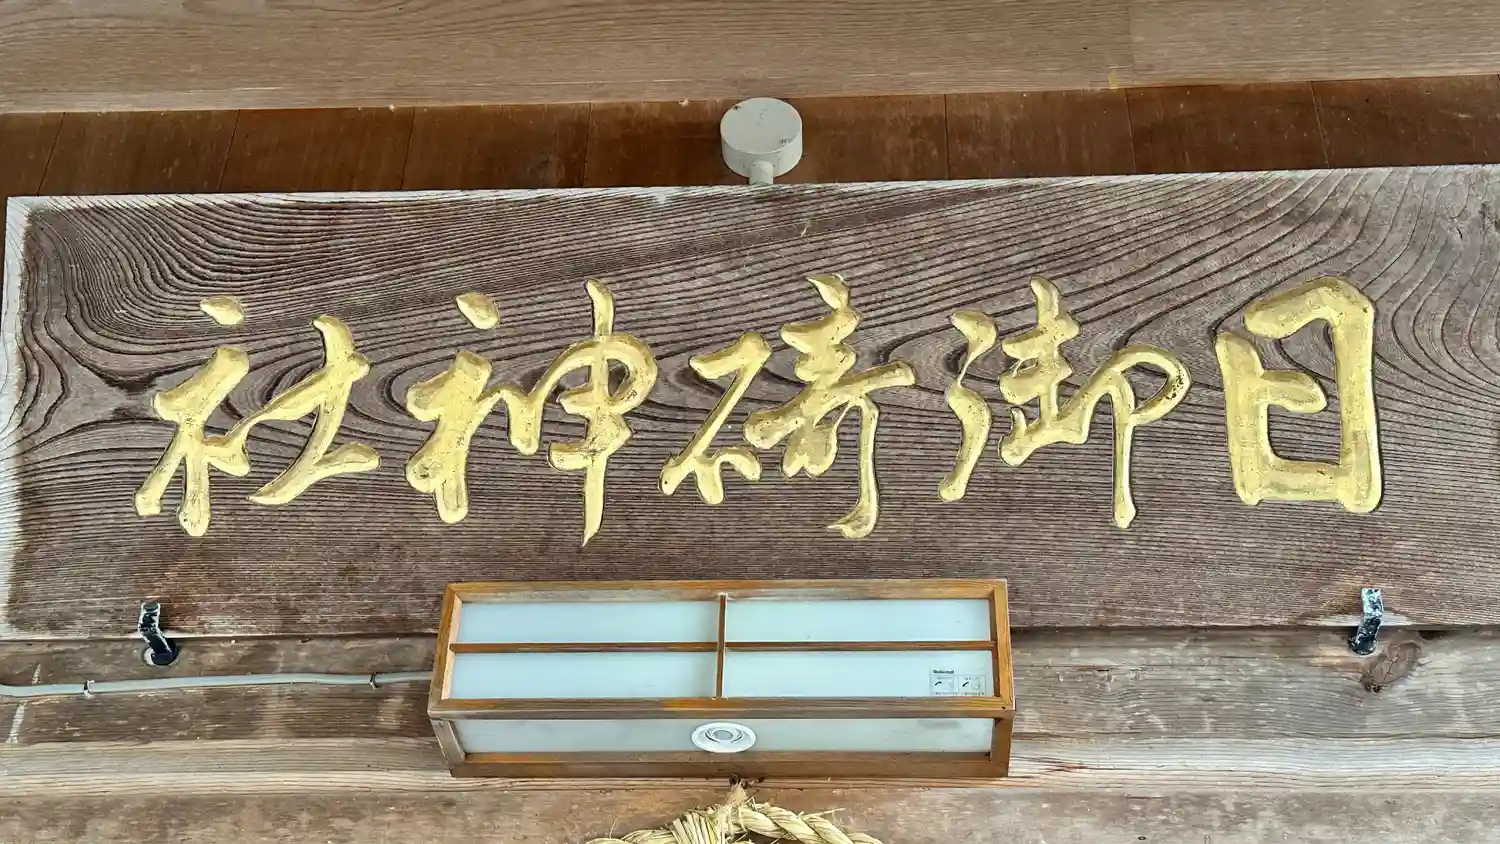 日御碕神社
National